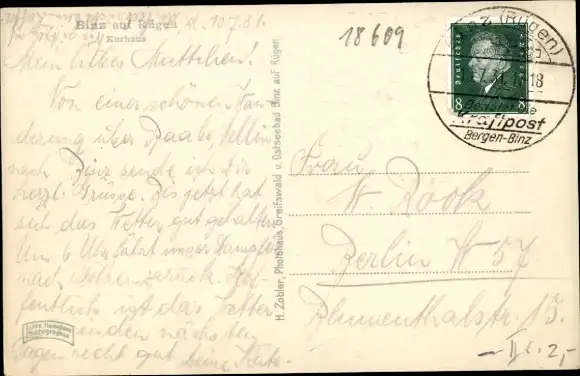 Binz auf Rügen
Kurhaus
d. 10.7.31.
Mein liebes Muttchen!
Von einer schönen Wan-
derung über Baabe, Sellin
nach Binz sende ich Dir
herzl. Grüsse. Bis jetzt hat
sich das Wetter gut gehalten.
Um 6 Uhr fährt unser Dampfer
nach zurück. Hof-
fentlich ist das Wetter
in den nächsten
Tagen recht gut. Deine Käte.
H. Zobler, Photohaus, Greifswald u. Ostseebad Binz auf Rügen
Echte Handabzug
Photographie
18609
Binz (Rügen)
18
Kraftpost
Bergen-Binz
DEUTSCHES REICH
8 8
Frau
W. Rook
Berlin W 57
Blumenthalstr. 15.
2,-